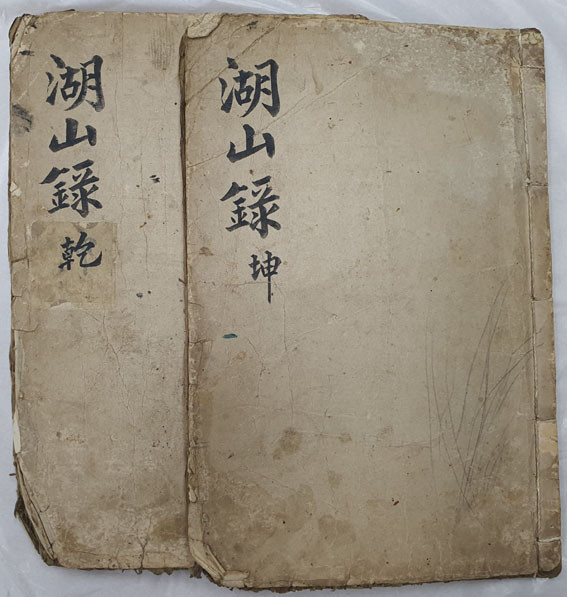 湖山錄
乾
湖山錄
坤